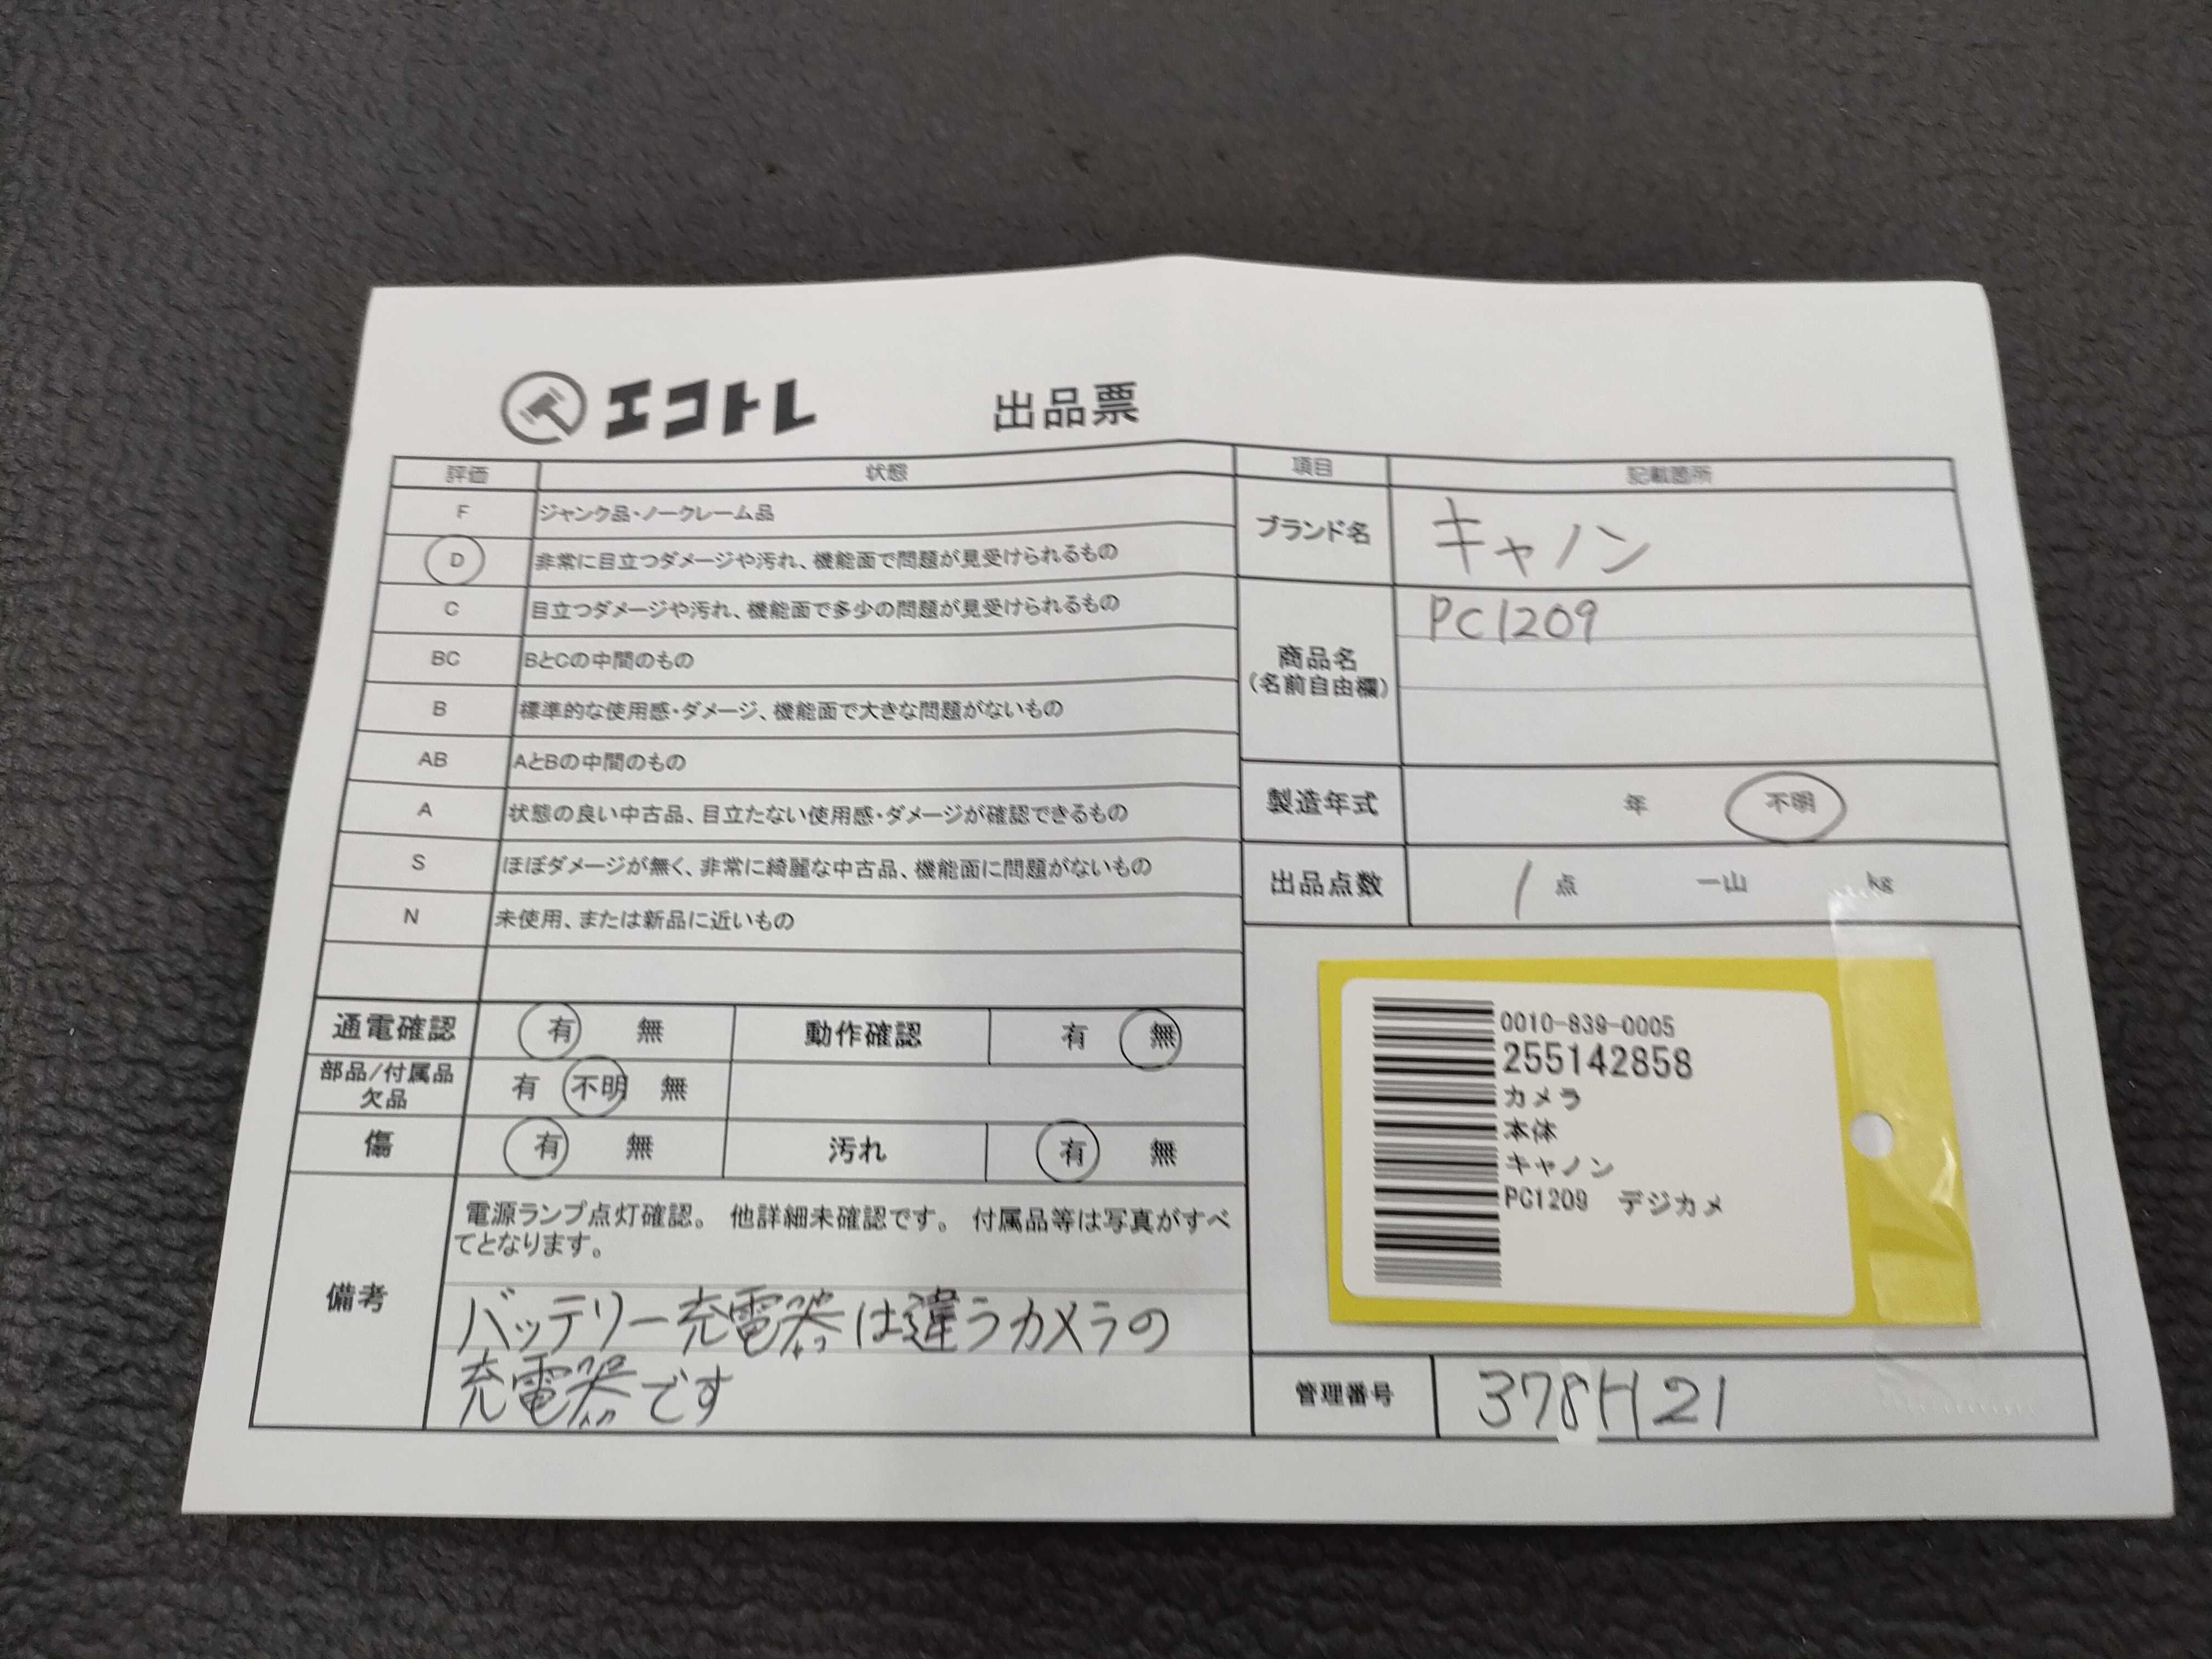 エコトレ 出品票
評価 状態
F ジャンク品・ノークレーム品
D 非常に目立つダメージや汚れ、機能面で問題が見受けられるもの
C 目立つダメージや汚れ、機能面で多少の問題が見受けられるもの
BC BとCの中間のもの
B 標準的な使用感・ダメージ、機能面で大きな問題がないもの
AB AとBの中間のもの
A 状態の良い中古品、目立たない使用感・ダメージが確認できるもの
S ほぼダメージが無く、非常に綺麗な中古品、機能面に問題がないもの
N 未使用、または新品に近いもの
通電確認 有 無 動作確認 有 無
部品/付属品
欠品 有 不明 無
傷 有 無 汚れ 有 無
備考
電源ランプ点灯確認。 他詳細未確認です。 付属品等は写真がすべ
てとなります。
バッテリー充電器は違うカメラの
充電器です
項目 記載箇所
ブランド名 キャノン
商品名
(名前自由欄)
PC1209
製造年式 年 不明
出品点数 1 点 一山 kg
0010-839-0005
255142858
カメラ
本体
キャノン
PC1209 デジカメ
管理番号 378H21